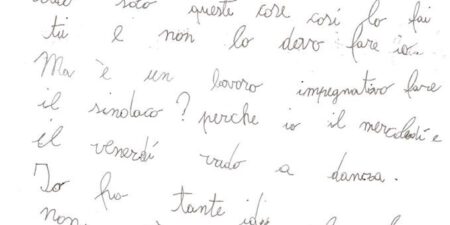 solo queste cose così lo fai
tu e non lo devo fare io.
Ma è un lavoro impegnativo fare
il sindaco? perche io il mercoledì e
il venerdì vado a danza.
Io ho tante idee
non